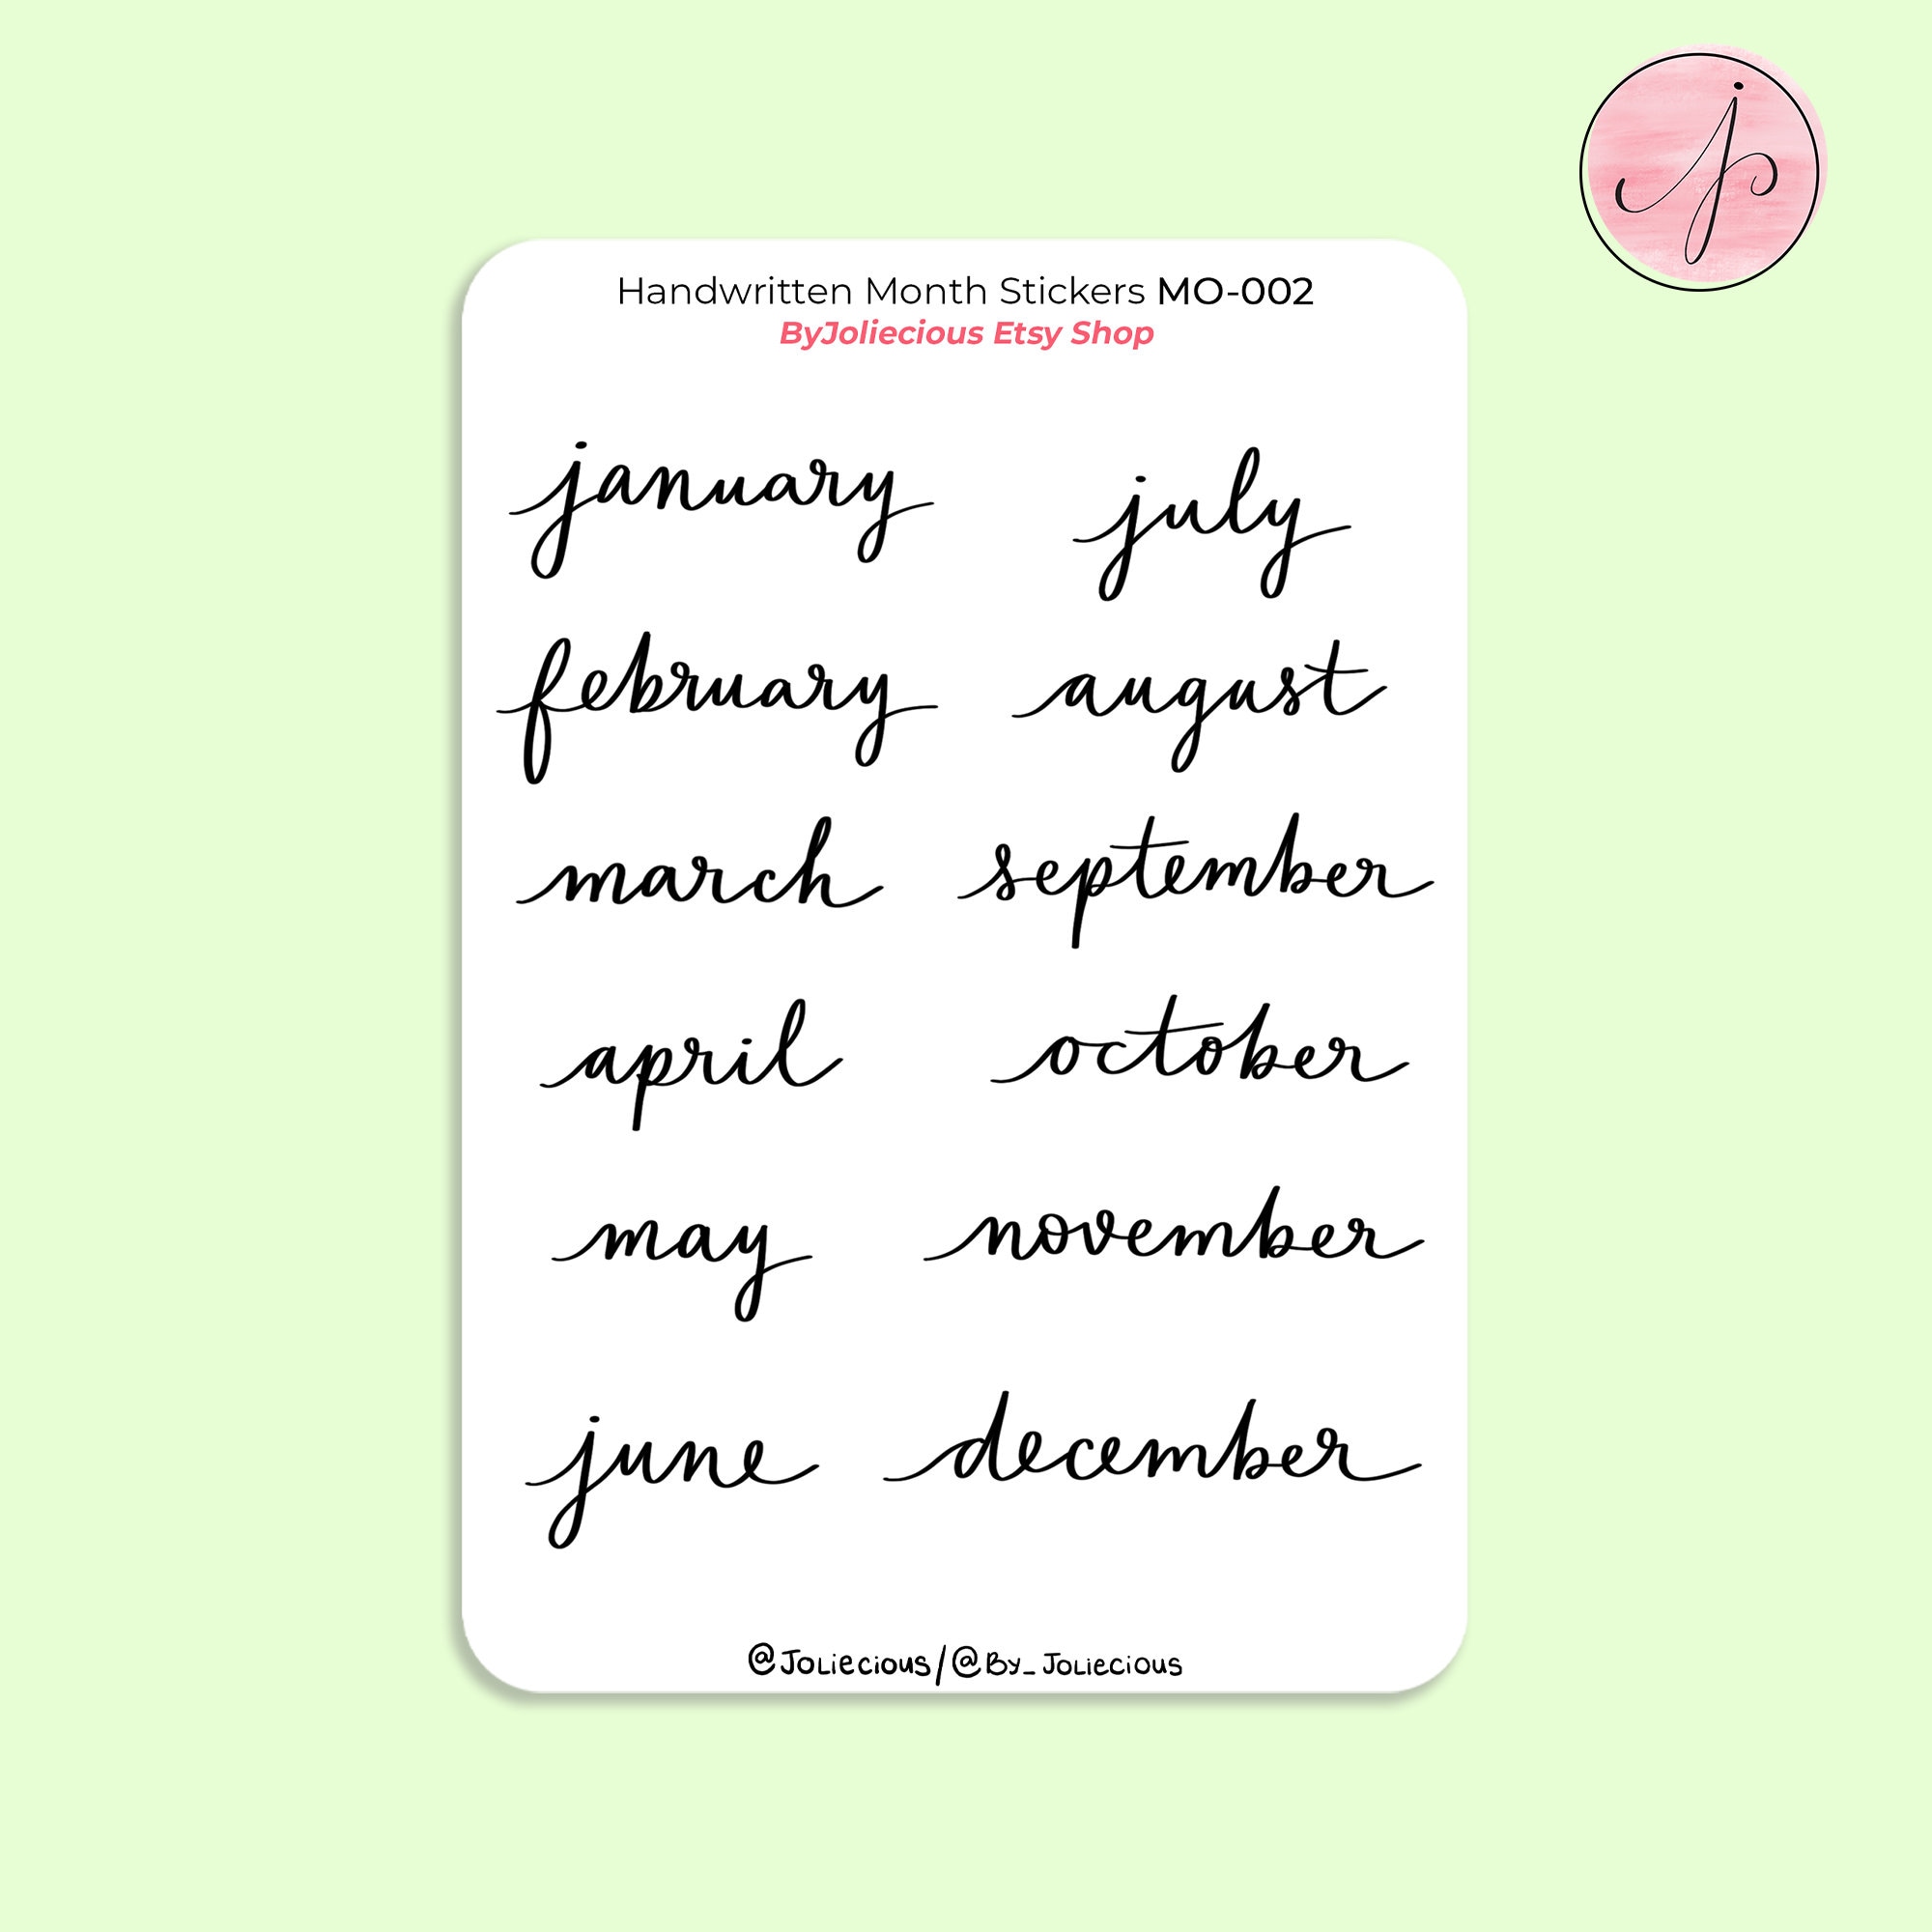 Handwritten Month Stickers MO-002
ByJoliecious Etsy Shop
january
february
march
april
may
june
july
august
september
october
november
december
@Joliecious/@By_Joliecious